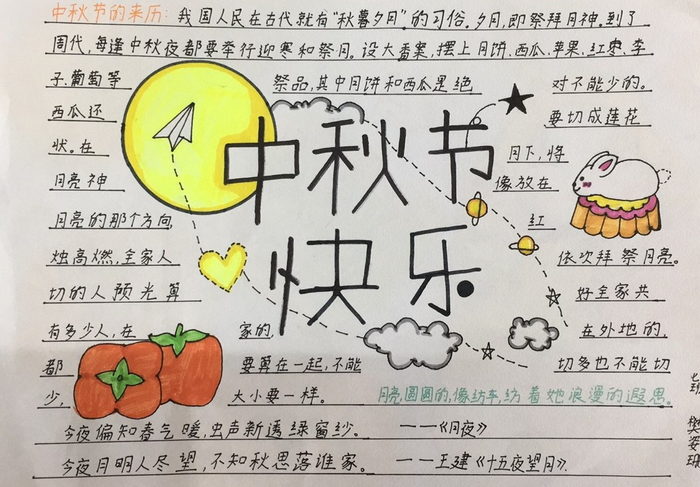 中秋节的来历：我国人民在古代就有“秋暮夕月”的习俗。夕月，即祭拜月神。到了
周代，每逢中秋夜都要举行迎寒和祭月。设大香案，摆上月饼、西瓜、苹果、红枣、李
子、葡萄等祭品，其中月饼和西瓜是绝对不能少的。
西瓜还要切成莲花
状。在月下，将
月亮神像放在
月亮的那个方向，红
烛高燃，全家人依次拜祭月亮。
切的人预先算好全家共
有多少人，在家的，在外地的，
都要算在一起，不能切多也不能切
少，大小要一样。
中秋节
快乐
月亮圆圆的，像纺车，纺着她浪漫的遐思。
今夜偏知春气暖，虫声新透绿窗纱。——《月夜》
今夜月明人尽望，不知秋思落谁家。——王建《十五夜望月》